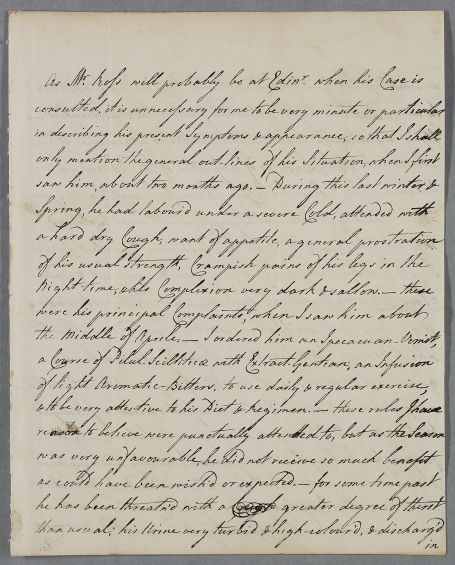 As Mr. Ross will probably be at Edinr. when his Case is
consulted, it is unnecessary for me to be very minute or particular
in describing his present Symptoms & appearance, so that I shall
only mention the general out-lines of his Situation, when I first
saw him, about two months ago. — During this last winter &
Spring, he had labour'd under a severe Cold, attended with
a hard dry Cough, want of appetite, a general prostration
of his usual strength, Crampish pains of his legs in the
Night time, & his Complexion very dark & sallow. — these
were his principal Complaints, when I saw him about
the Middle of Aprile. — I ordered him an Ipecacuan Vomit,
a Course of Pilul. Scilliticæ with Extract. Gentianæ, an Infusion
of light Aromatic-Bitters, to use daily & regular exercise,
& to be very attentive to his Diet & Regimen. — these rules I have
reason to believe were punctually attended to, but as the Season
was very unfavourable, he did not receive so much benefit
as could have been wish'd or expected. — for some time past
he has been threatned with a greater degree of thirst
than usual; his Urine very turbid & high-colour'd, & discharg'd
in